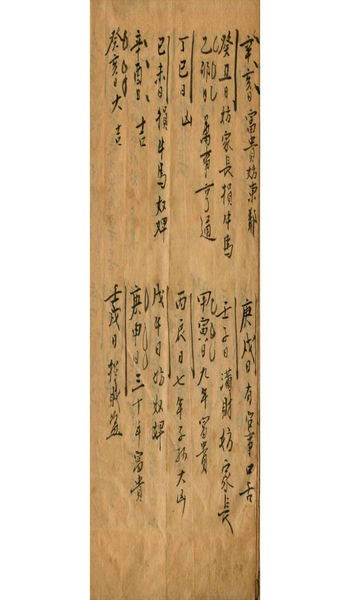 辛亥日富貴妨東鄰
庚戌日有官事口舌
癸丑日妨家長損牛馬
壬子日滿財妨家長
乙卯日萬事亨通
甲寅日九年富貴
丁巳日凶
丙辰日七年子孫大凶
己未日損牛馬奴婢
戊午日妨奴婢
辛酉日吉
庚申日三丁年富貴
癸亥日大吉
壬戌日招賊盜